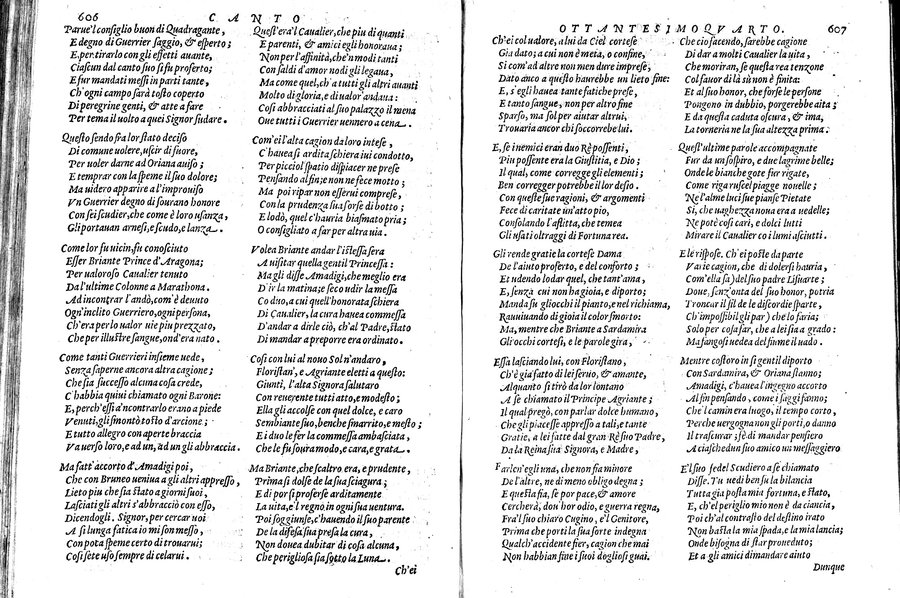 606
CANTO
Parue'l consiglio buon di Quadragante,
E degno di Guerrier saggio, & esperto;
E, per tirarlo con gli effetti auante,
Ciascun dal canto suo si fu proferto;
E fur mandati messi in parti tante,
Ch'ogni campo sarà tosto coperto
Di peregrine genti, & atte a fare
Per tema il uolto a quei Signor sudare.
Questo sendo fra lor stato deciso
Di comune uolere, uscir di fuore,
Per uoler darne ad Oriana auiso;
E temprar con la speme il suo dolore;
Ma uidero apparire a l'improuiso
Vn Guerrier degno di sourano honore
Con sei scudier, che come è loro usanza,
Gli portauan arnesi, e scudo, e lanza.
Come lor fu uicin, fu conosciuto
Esser Briante Prince d'Aragona;
Per ualoroso Caualier tenuto
Da l'ultime Colonne a Marathona.
Ad incontrar l'andò, com'è deuuto
Ogn'inclito Guerriero, ogni persona,
Ch'era per lo ualor uie piu prezzato,
Che per illustre sangue, ond'era nato.
Come tanti Guerrieri insieme uede,
Senza saperne ancora altra cagione;
Che sia successo alcuna cosa crede,
C'habbia qui chiamato ogni Barone:
E, perch'essi a'ncontrarlo erano a piede
Venuti, gli smontò tosto d'arcione;
E tutto allegro con aperte braccia
Va uerso loro, e ad un, ad un gli abbraccia.
Ma fatt'accorto d'Amadigi poi,
Che con Bruneo ueniua a gli altri appresso,
Lieto piu che sia stato a giorni suoi,
Lasciati gli altri s'abbracciò con esso,
Dicendogli. Signor, per cercar uoi
A sì lunga fatica io mi son messo,
Con pota speme certo di trouarui;
Cosi sete uso sempre di celarui.
Quest'era'l Caualier, che piu di quanti
E parenti, & amici egli honoraua;
Non per l'affinità, che'n modi tanti
Con saldi d'amor nodi gli legaua,
Ma come quel, ch'a tutti gli altri auanti
Molto di gloria, e di ualor andaua:
Cosi abbracciati al suo palazzo il mena
Oue tutti i Guerrier uennero a cena.
Com'ei l'alta cagion da loro intese,
C'hauea si ardita schiera iui condotto,
Per picciol spatio dispiacer ne prese
Pensando al fin; e non ne fece motto;
Ma poi ripar non esserui comprese,
Con la prudenza sua forse di botto;
E lodò, quel c'hauria biasmato pria;
O consigliato a far per altra uia.
Volea Briante andar l'istessa sera
A uisitar quella gentil Princessa:
Ma gli disse Amadigi, che meglio era
D'ir la matina; e seco udir la messa
Co duo, a cui quell'honorata schiera
Di Caualier, la cura hauea commessa
D'andar a dirle ciò, ch'al Padre, stato
Di mandar a preporre era ordinato.
Cosi con lui al nouo Sol n'andaro,
Floristan', e Agriante eletti a questo:
Giunti, l'alta Signora salutaro
Con reuerente tutti atto, e modesto;
Ella gli accolse con quel dolce, e caro
Sembiante suo, benche smarrito, e mesto;
E i duo le fer la commessa ambasciata,
Che le fu soura modo, e cara, e grata.
Ma Briante, che scaltro era, e prudente,
Prima si dolse de la sua sciagura;
E di poi si proferse arditamente
La uita, e'l regno in ogni sua uentura.
Poi soggiunse, c'hauendo il suo parente
De la difesa sua presa la cura,
Non douea dubitar di cosa alcuna,
Che perigliosa sia sotto la Luna.
Ch'ei
OTTANTESIMOQVARTO.
607
Ch'ei col ualore, a lui da Ciel cortese
Gia dato; a cui non è meta, o confine,
Si com'ad altre non men dure imprese,
Dato anco a questo haurebbe un lieto fine:
E, s'egli hauea tante fatiche prese,
E tanto sangue, non per altro fine
Sparso, ma sol per aiutar altrui,
Trouaria ancor chi soccorrebe lui.
E, se inemici eran duo Rè possenti,
Piu possente era la Giustitia, e Dio;
Il qual, come corregge gli elementi;
Ben corregger potrebbe il lor desio.
Con queste sue ragioni, & argomenti
Fece di caritate un'atto pio,
Consolando l'afflitta, che temea
Gli usati oltraggi di Fortuna rea.
Gli rende gratie la cortese Dama
De l'aiuto proferto, e del conforto;
Et udendo lodar quel, che tant'ama,
E, senza cui non ha gioia, e diporto;
Manda su gli occhi il pianto, e nel richiama,
Rauuiuando di gioia il color smorto:
Ma, mentre che Briante a Sardamira
Gli occhi cortesi, e le parole gira,
Essa lasciando lui, con Floristano,
Ch'è gia fatto di lei seruo, & amante,
Alquanto si tirò da lor lontano
A se chiamato il Principe Agriante;
Il qual pregò, con parlar dolce humano,
Che gli piacesse appresso a tali, e tante
Gratie, a lei fatte dal gran Rè suo Padre,
Da la Reina sua Signora, e Madre,
Farlen'egli una, che non fia minore
De l'altre, ne di meno obligo degna;
E questa fia, se por pace, & amore
Cercherà, dou'hor odio, e guerra regna,
Fra'l suo chiaro Cugino, e'l Genitore,
Prima che porti la sua sorte indegna
Qualch'accidente fier, cagion che mai
Non habbian fine i suoi dogliosi guai.
Che cio facendo, sarebbe cagione
Di dar a molti Caualier la uita,
Che moriran, se questa rea tenzone
Col fauor di là sù non è finita:
Et al suo honor, che forse le persone
Pongono in dubbio, porgerebbe aita;
E da questa caduta oscura, & ima,
La torneria ne la sua altezza prima.
Quest'ultime parole accompagnate
Fur da un sospiro, e due lagrime belle;
Onde le bianche gote fur rigate,
Come riga ruscel piagge nouelle;
Ne l'alme luci sue pianse Pietate
Si, che uaghezza noua era a uedelle;
Ne potè cosi cari, e dolci lutti
Mirare il Caualier co i lumi asciutti.
E le rispose. Ch'ei poste da parte
Varie cagion, che di dolersi hauria,
Com'ella sa) del padre Lisuarte;
Doue, senz'onta del suo honor, potria
Troncar il fil de le discordie sparte,
(Ch'impossibil gli par) che lo faria;
Solo per cosa far, che a lei sia a grado:
Ma fangosi uedea del fiume il uado.
Mentre costoro in sì gentil diporto
Con Sardamira, & Oriana stanno;
Amadigi, c'hauea l'ingegno accorto
Al fin pensando, come i saggi fanno;
Che'l camin era luogo, il tempo corto,
Perche uergogna non gli porti, o danno
Il trascurar; fè di mandar pensiero
A ciaschedun suo amico un messaggiero
E'l suo fedel Scudiero a se chiamato
Disse. Tu uedi ben su la bilancia
Tutta gia posta mia fortuna, e stato,
E, ch'el periglio mio non è da ciancia,
Poi ch'al contrasto del destino irato
Non basta la mia spada, e la mia lancia;
Onde bisogna di star proueduto;
Et a gli amici dimandare aiuto
Dunque